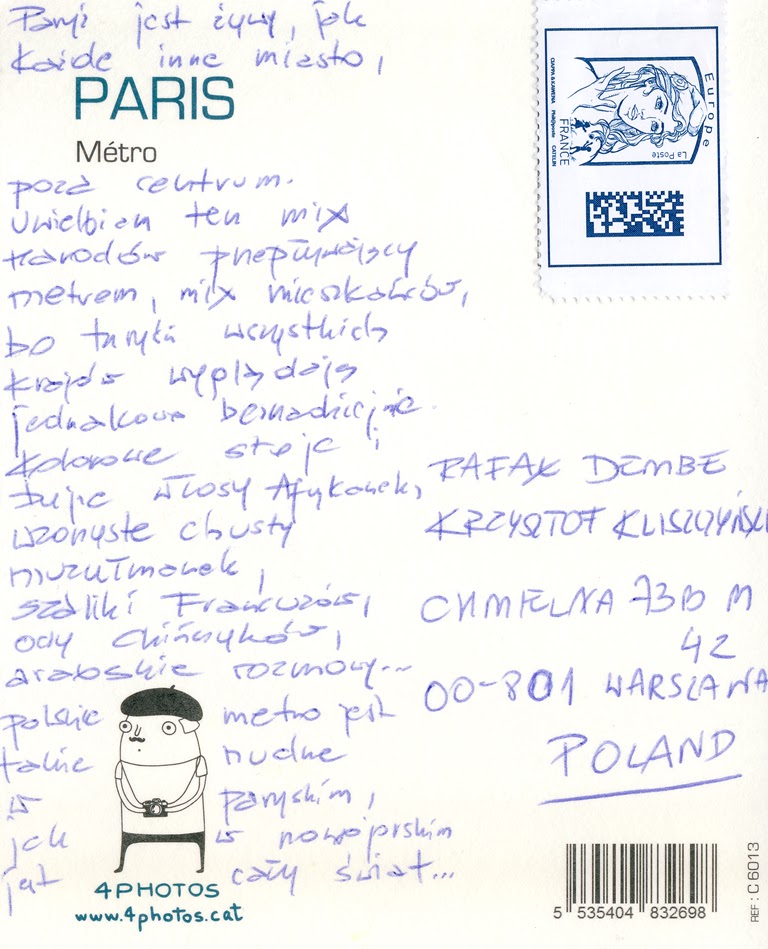 Paryż jest żywy, jak
każde inne miasto,
PARIS
Métro
poza centrum.
Uwielbiam ten mix
narodów przepływający
metrem, mix mieszkańców,
bo turyści wszystkich
krajów wyglądają
jednakowo beznadziejnie.
Kolorowe stroje,
bujne włosy Afrykanek,
wzorzyste chusty
muzułmanek,
szaliki Francuzów,
oczy Chińczyków,
arabskie rozmowy...
polskie metro jest
takie nudne
w paryskim,
jak w nowojorskim
jest cały świat...
4PHOTOS
www.4photos.cat
Europe
La Poste
FRANCE
CIAPPA & KAWENA Phil@poste CATELIN
RAFAŁ DEMBE
KRZYSZTOF KLISZCZYŃSKI
CHMIELNA 73B M
42
00-801 WARSZAWA
POLAND
5 535404 832698
REF: C6013